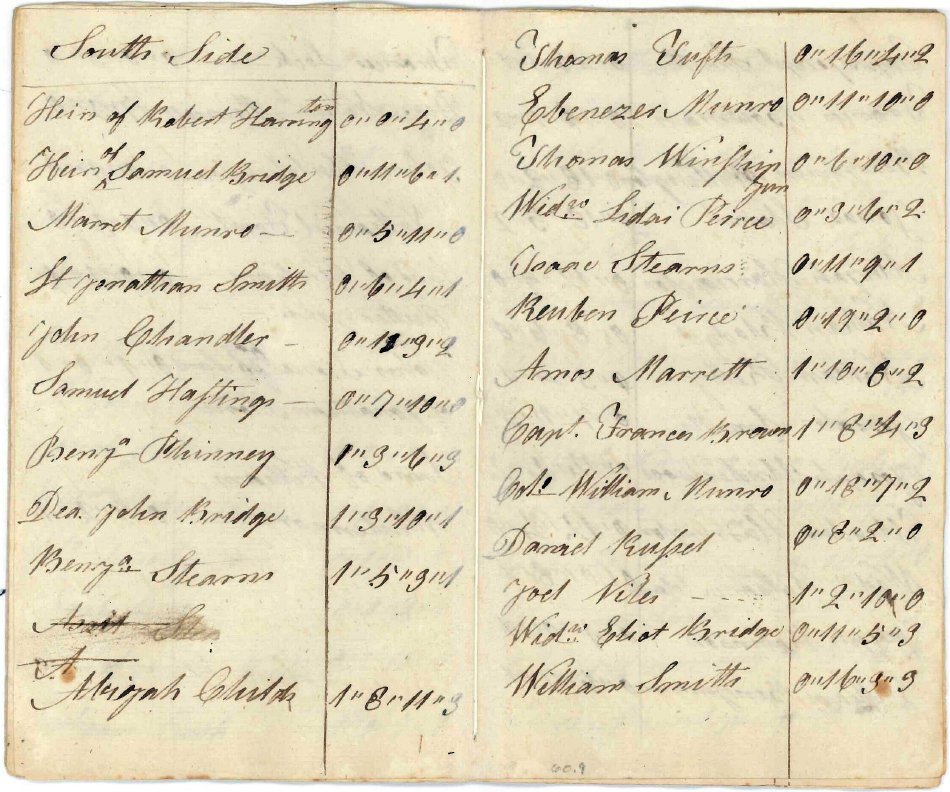 South Side
Heirs of Robert Harrington 0"0"4"0
Heirs of Samuel Bridge 0"11"6"1
Marret Munro — 0"5"11"0
Lt Jonathan Smith 0"6"4"1
John Chandler — 0"11"9"2
Samuel Hastings — 0"7"10"0
Benja Phinney 1"3"6"3
Dea. John Bridge 1"3"10"1
Benja Stearns 1"5"9"1
A
Abijah Childs 1"8"11"3
Thomas Tufts 0"16"4"2
Ebenezer Munro 0"11"10"0
Thomas Winship Jun 0"6"10"0
Widw Lidai Peirce 0"3"6"2
Isaac Stearns 0"11"9"1
Reuben Peirce 0"19"2"0
Amos Marrett 1"10"8"2
Capt. Frances Brown 1"8"4"3
Col. William Munro 0"18"7"2
Daniel Russel 0"8"2"0
Joel Viles - - - - 1"2"10"0
Widw Eliot Bridge 0"11"5"3
William Smith 0"16"3"3
60.9